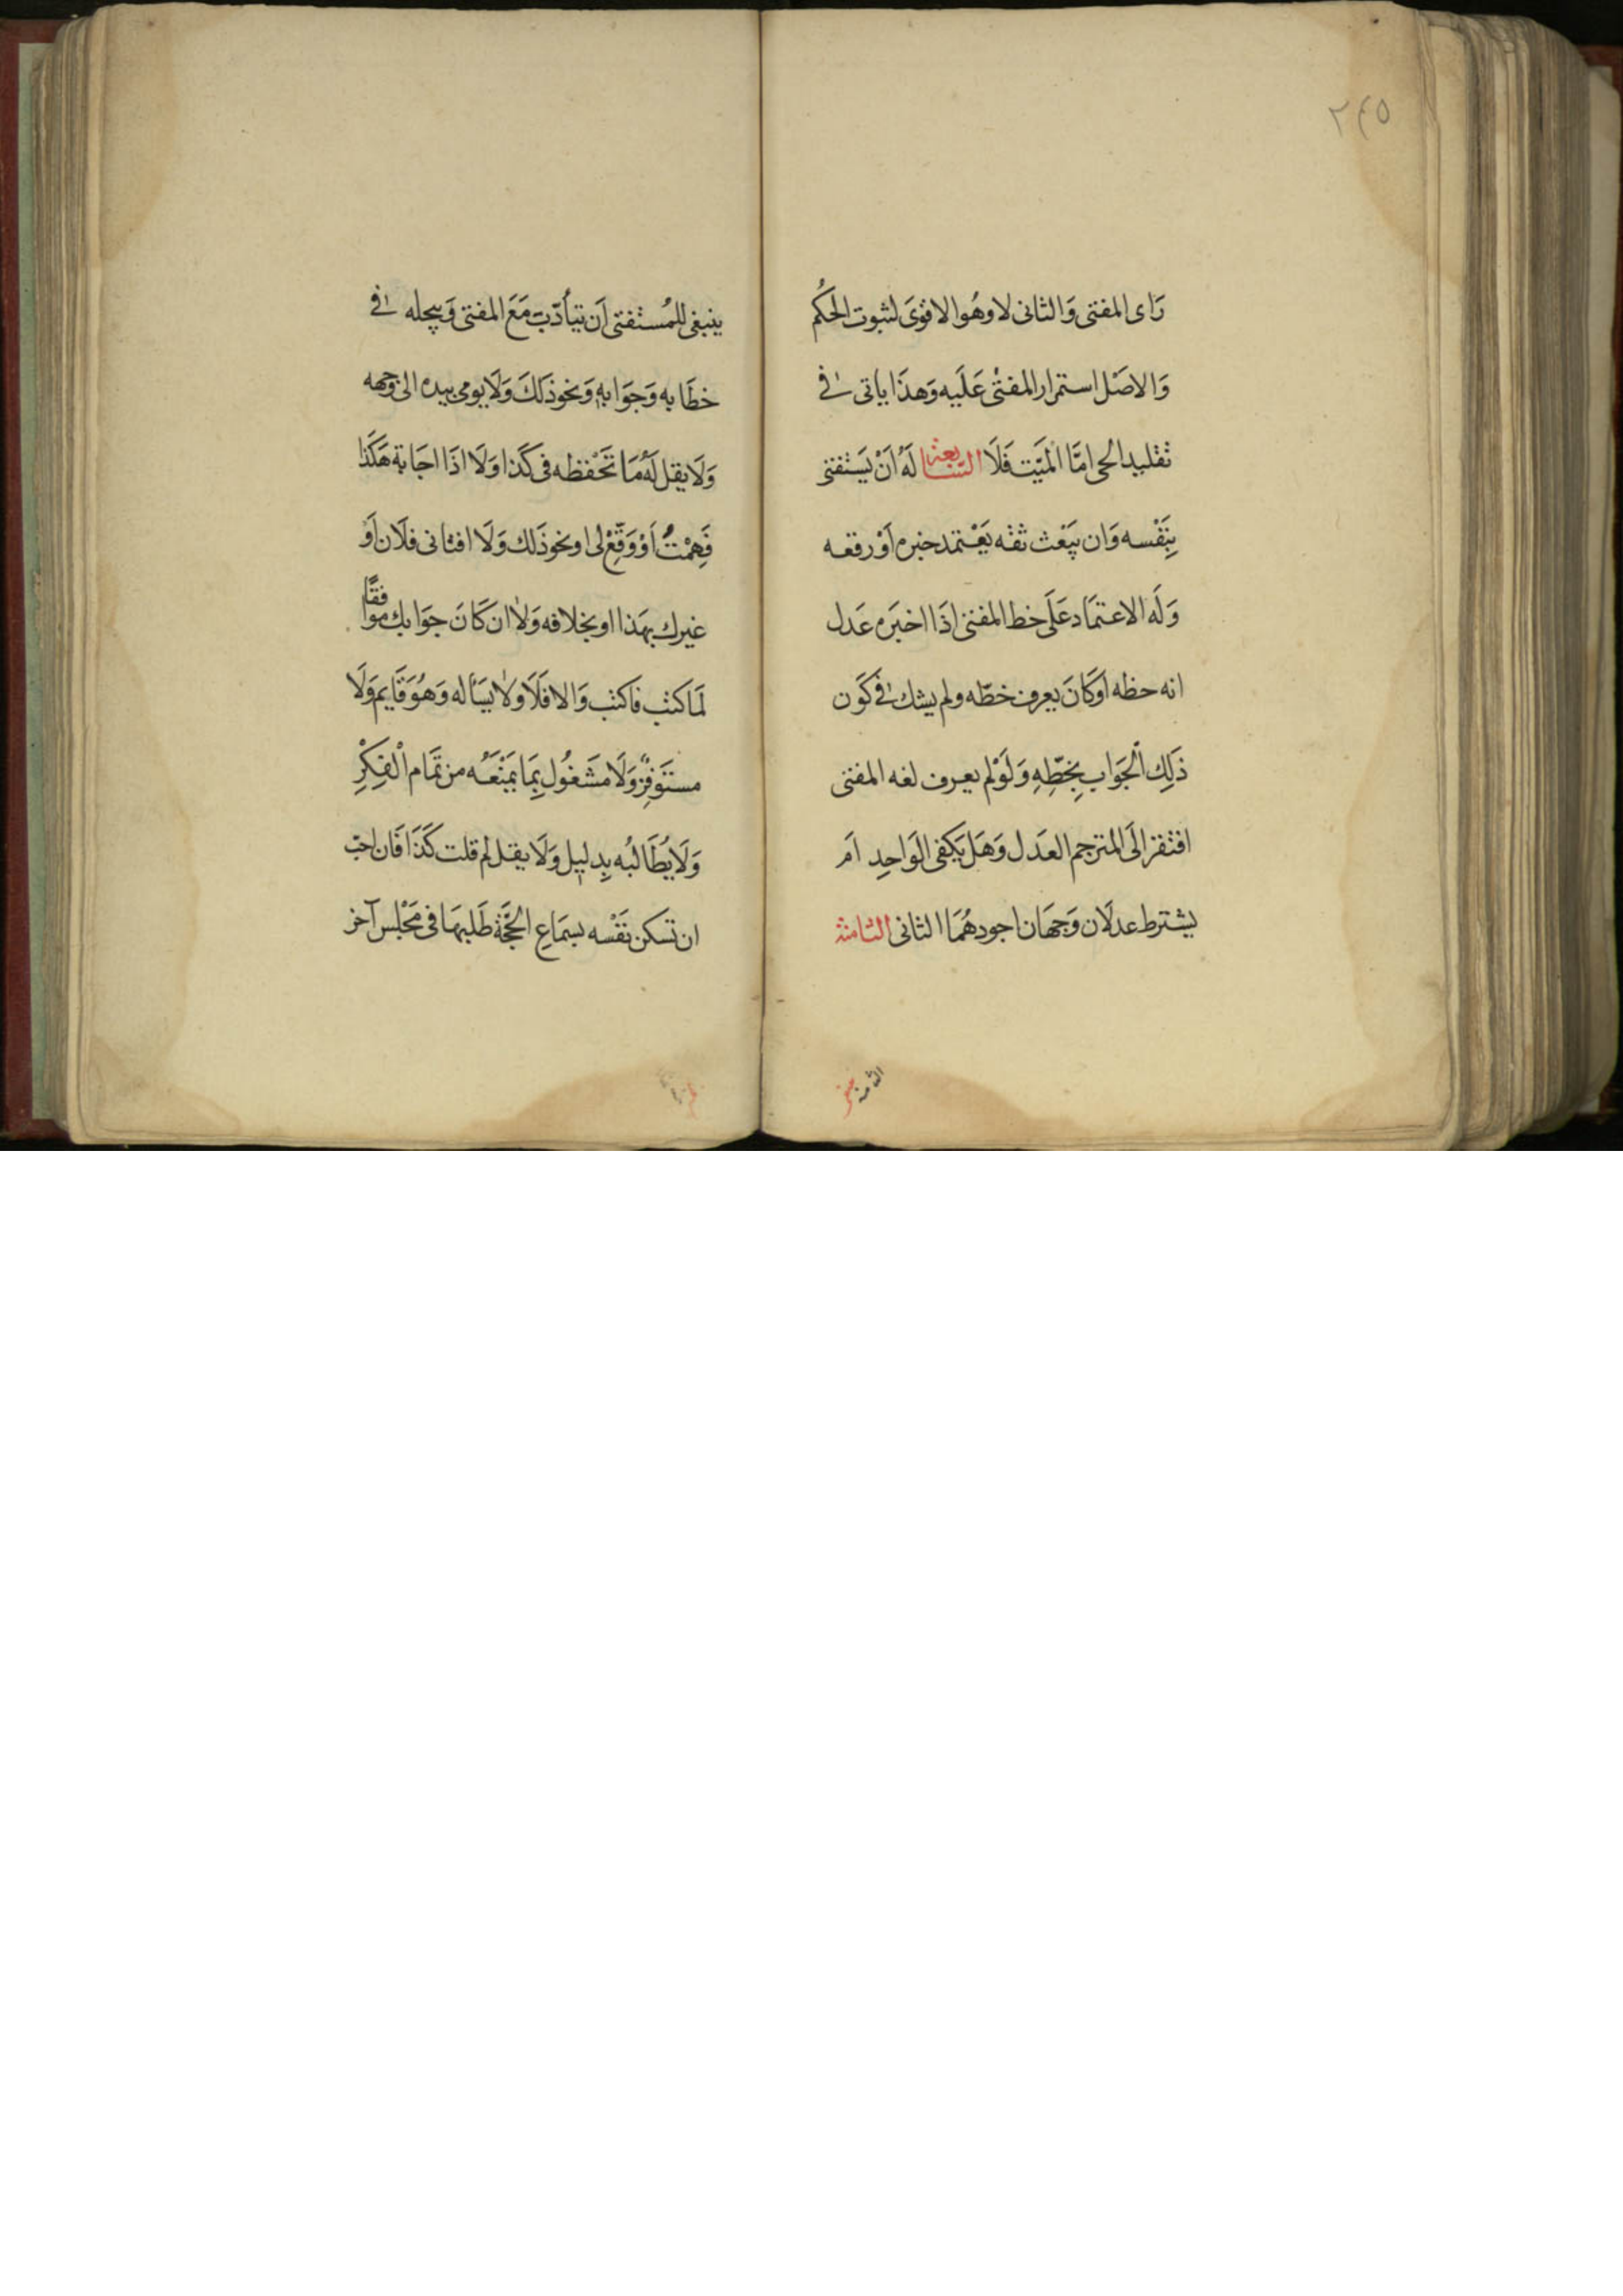 ٢٤٥
رَاى المفتى وَالثانى لا وهُوا لاقوَى لثبوت الحكُم
وَالاصَل استمرار المفتْى عَلَيه وَهذَا ياتى فى
تقليد الحى امَّا الْمَيّت فَلَا السَّابعَة لَهُ اَنْ يَسْتفتى
بِنَفْسه وَان يبَعْث ثقه يَعْتمد خبره اَوْ رقعه
وَلَه الاعتمَاد عَلَى خط المفتى اذَا اخبَره عَدل
انه حظه اوكَانَ يعرف خطّه ولم يشك فى كَون
ذَلِك الْجَوَاب بِخَطِّهِ وَلَوْلم يعرف لغه المفتى
افتقر الَى المترجم العَدل وَهَل يَكفى الوَاحِد اَم
يشترط عدلَان وَجهَان اجودهُمَا الثانى الثامنة
الثامنة
ينبغى للمُستفتى اَن يتأدّبَ مَعَ المفتى وَيبجله فى
خطَابه وَجوَابهِ وَنحو ذَلكَ وَلَا يومى بيده الى وجهه
وَلَا يقل لَهُ مَا تَحْفظه فى كَذا وَلَا اذَا اجَابة هَكَذا
فَهِمْتُ اَوْ وَقّعْ لى او نحو ذَلك وَلَا افتانى فلَان اَوْ
غيرك بهَذا او بخلافه وَلا ان كَانَ جوَابك موافقًا
لَما كتب فاكتب وَالا فَلَا وَلَا يسَأله وَهُوَ قَايم وَلَا
مستَوفِزٌ وَلَا مشَغُول بِمَا يمَنْعَهُ من تَمَام الْفِكِرْ
وَلَا يُطَالبُه بِدليل وَلَا يقل لم قلت كَذَا فَان احبّ
ان تسَكن نَفْسه بسمَاعِ الحجَّة طَلَبهَا فى مَجْلس آخر